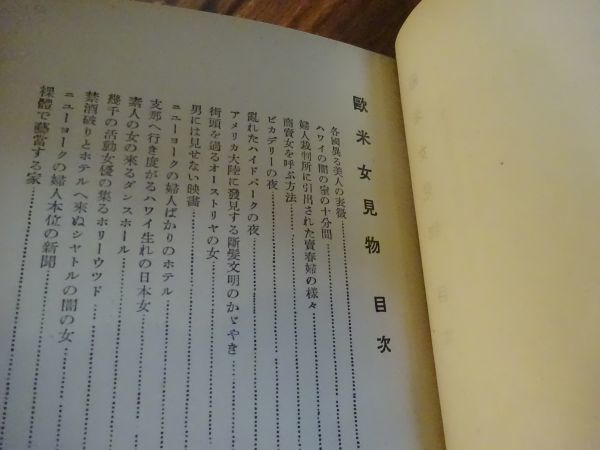 歐米女見物 目次
各國異る美人の表徴
ハワイの闇の室の十分間
婦人裁判所に引出された賣春婦の様々
商賣女を呼ぶ方法
ピカデリーの夜
亂れたハイドパークの夜
アメリカ大陸に發見する斷髮文明のかゞやき
街頭を過るオーストリヤの女
男には見せない映畫
ニューヨークの婦人ばかりのホテル
支那へ行き度がるハワイ生れの日本女
素人の女の來るダンスホール
幾千の活動女優の集るホリーウツド
禁酒破りとホテルへ來ぬシヤトルの闇の女
ニューヨークの婦人本位の新聞
裸體で藝當する家